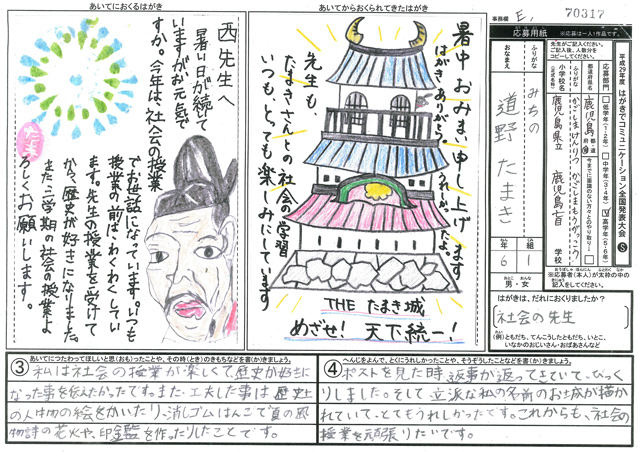 あいてにおくるはがき
西先生へ
暑い日が続いて
いますがお元気で
すか。今年は、社会の授業
でお世話になっています。いつも
授業の前は、わくわくしてい
ます。先生の授業を受けて
から、歴史が好きになりました。
また二学期の社会の授業よ
ろしくお願いします。
あいてからおくられてきたはがき
暑中おみまい申し上げます
はがきありがとう。うれしかったよ。
先生も
たまきさんとの社会の学習
いつも、とっても楽しみにしています
THE たまき城
めざせ! 天下統一!
事務欄 E, 70317
応募用紙 ※応募は一人1作品です。
先生がご記入ください。
ご記入後、人数分を
コピーしてください。
平成29年度 はがきでコミュニケーション全国発表大会 S
応募部門
低学年(1・2年)
中学年(3・4年)
高学年(5・6年)
都道府県名
鹿児島 都・道・府・県
小学校名
(正式名称)
ふりがな
かごしまけんりつ かごしまもうがっこう
鹿児島県立 鹿児島盲 学校
ふりがな
みちの
おなまえ
道野 たまき
年 6
組 1
男・女
はがきは、だれにおくりましたか?
社会の先生
(例)ともだち、てんこうしたともだち、いとこ、
いなかのおじいさん・おばあさんなど
③ あいてにつたわってほしいと思(おも)ったことや、その時(とき)のきもちなどを書(か)きましょう。
私は社会の授業が楽しくて歴史が好きに
なった事を伝えたかったです。また、工夫した事は歴史上
の人物の絵をかいたり、消しゴムはんこで夏の風
物詩の花火や、印鑑を作ったりしたことです。
④ へんじをよんで、とくにうれしかったことや、そうぞうしたことなどを書(か)きましょう。
ポストを見た時、返事が返ってきていて、びっく
りしました。そして立派な私の名前のお城が描か
れていて、とてもうれしかったです。これからも、社会の
授業を頑張りたいです。